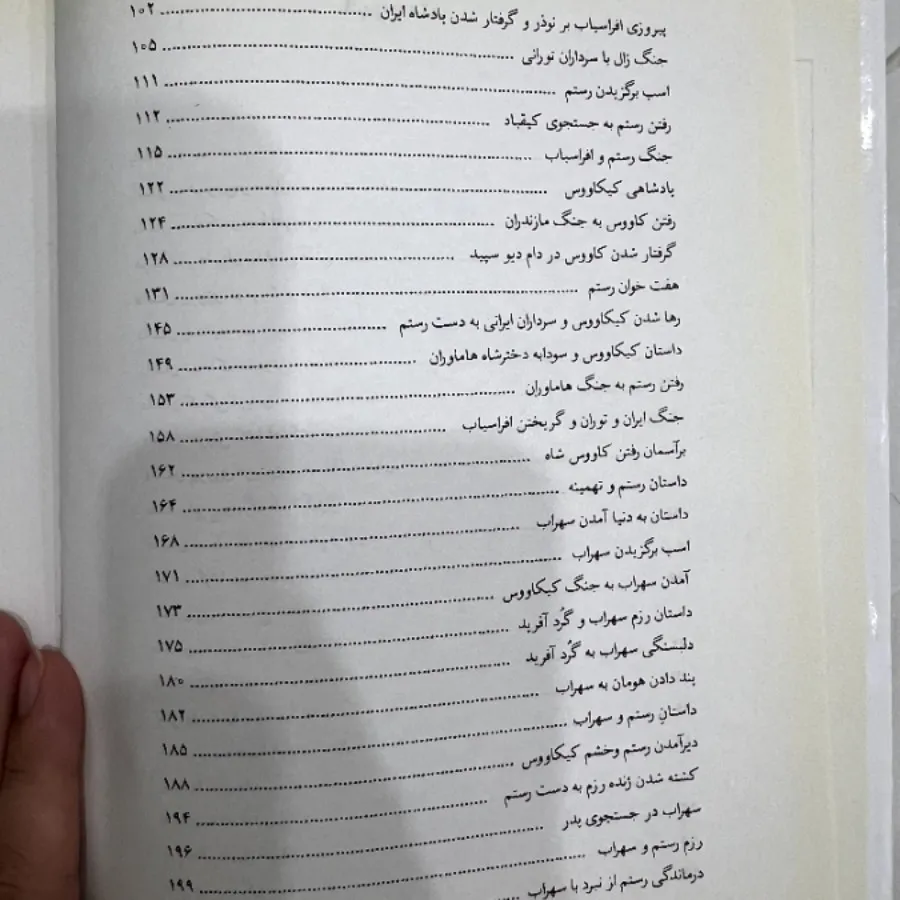 پیروزی افراسیاب بر نوذر و گرفتار شدن پادشاه ایران ........ ۱۰۲
جنگ زال با سرداران تورانی ........ ۱۰۵
اسب برگزیدن رستم ........ ۱۱۱
رفتن رستم به جستجوی کیقباد ........ ۱۱۲
جنگ رستم و افراسیاب ........ ۱۱۵
پادشاهی کیکاووس ........ ۱۲۲
رفتن کاووس به جنگ مازندران ........ ۱۲۴
گرفتار شدن کاووس در دام دیو سپید ........ ۱۲۸
هفت خوان رستم ........ ۱۳۱
رها شدن کیکاووس و سرداران ایرانی به دست رستم ........ ۱۴۵
داستان کیکاووس و سودابه دخترشاه هاماوران ........ ۱۴۹
رفتن رستم به جنگ هاماوران ........ ۱۵۳
جنگ ایران و توران و گریختن افراسیاب ........ ۱۵۸
برآسمان رفتن کاووس شاه ........ ۱۶۲
داستان رستم و تهمینه ........ ۱۶۴
داستان به دنیا آمدن سهراب ........ ۱۶۸
اسب برگزیدن سهراب ........ ۱۷۱
آمدن سهراب به جنگ کیکاووس ........ ۱۷۳
داستان رزم سهراب و گُرد آفرید ........ ۱۷۵
دلبستگی سهراب به گُرد آفرید ........ ۱۸۰
پند دادن هومان به سهراب ........ ۱۸۲
داستانِ رستم و سهراب ........ ۱۸۵
دیرآمدن رستم وخشم کیکاووس ........ ۱۸۸
کشته شدن ژنده رزم به دست رستم ........ ۱۹۴
سهراب در جستجوی پدر ........ ۱۹۶
رزم رستم و سهراب ........ ۱۹۹
درماندگی رستم از نبرد با سهراب ........